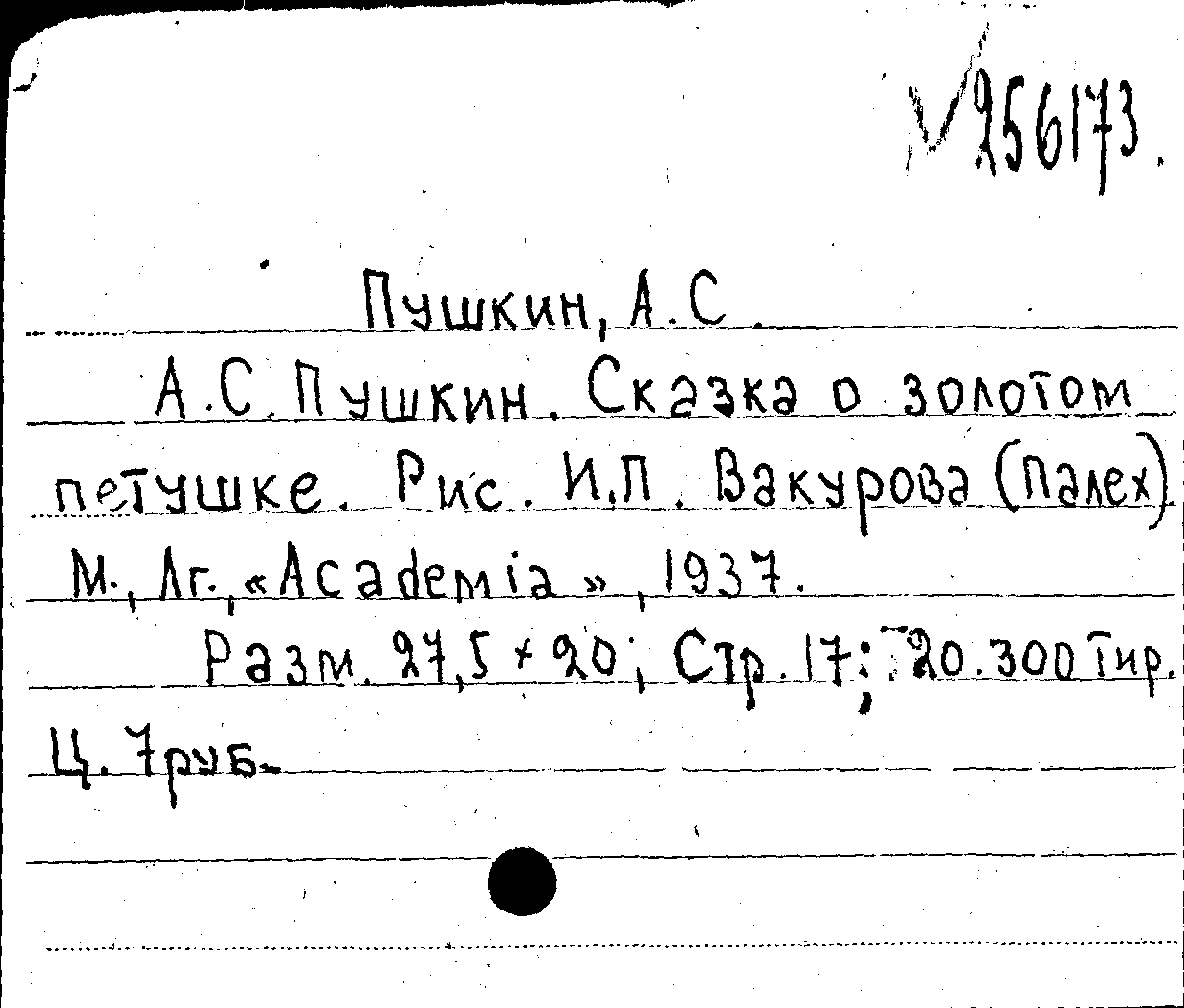 256173.
Пушкин, А.С.
А.С. Пушкин. Сказка о золотом
петушке. Рис. И.П. Вакурова (Палех)
М., Лг., «Academia», 1937.
Разм. 27,5 × 20; Стр. 17; 20.300 тир.
Ц. 7 руб.